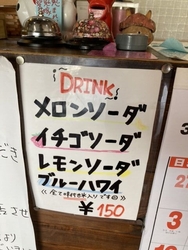 DRINK
メロンソーダ
イチゴソーダ
レモンソーダ
ブルーハワイ
¥150
日
3